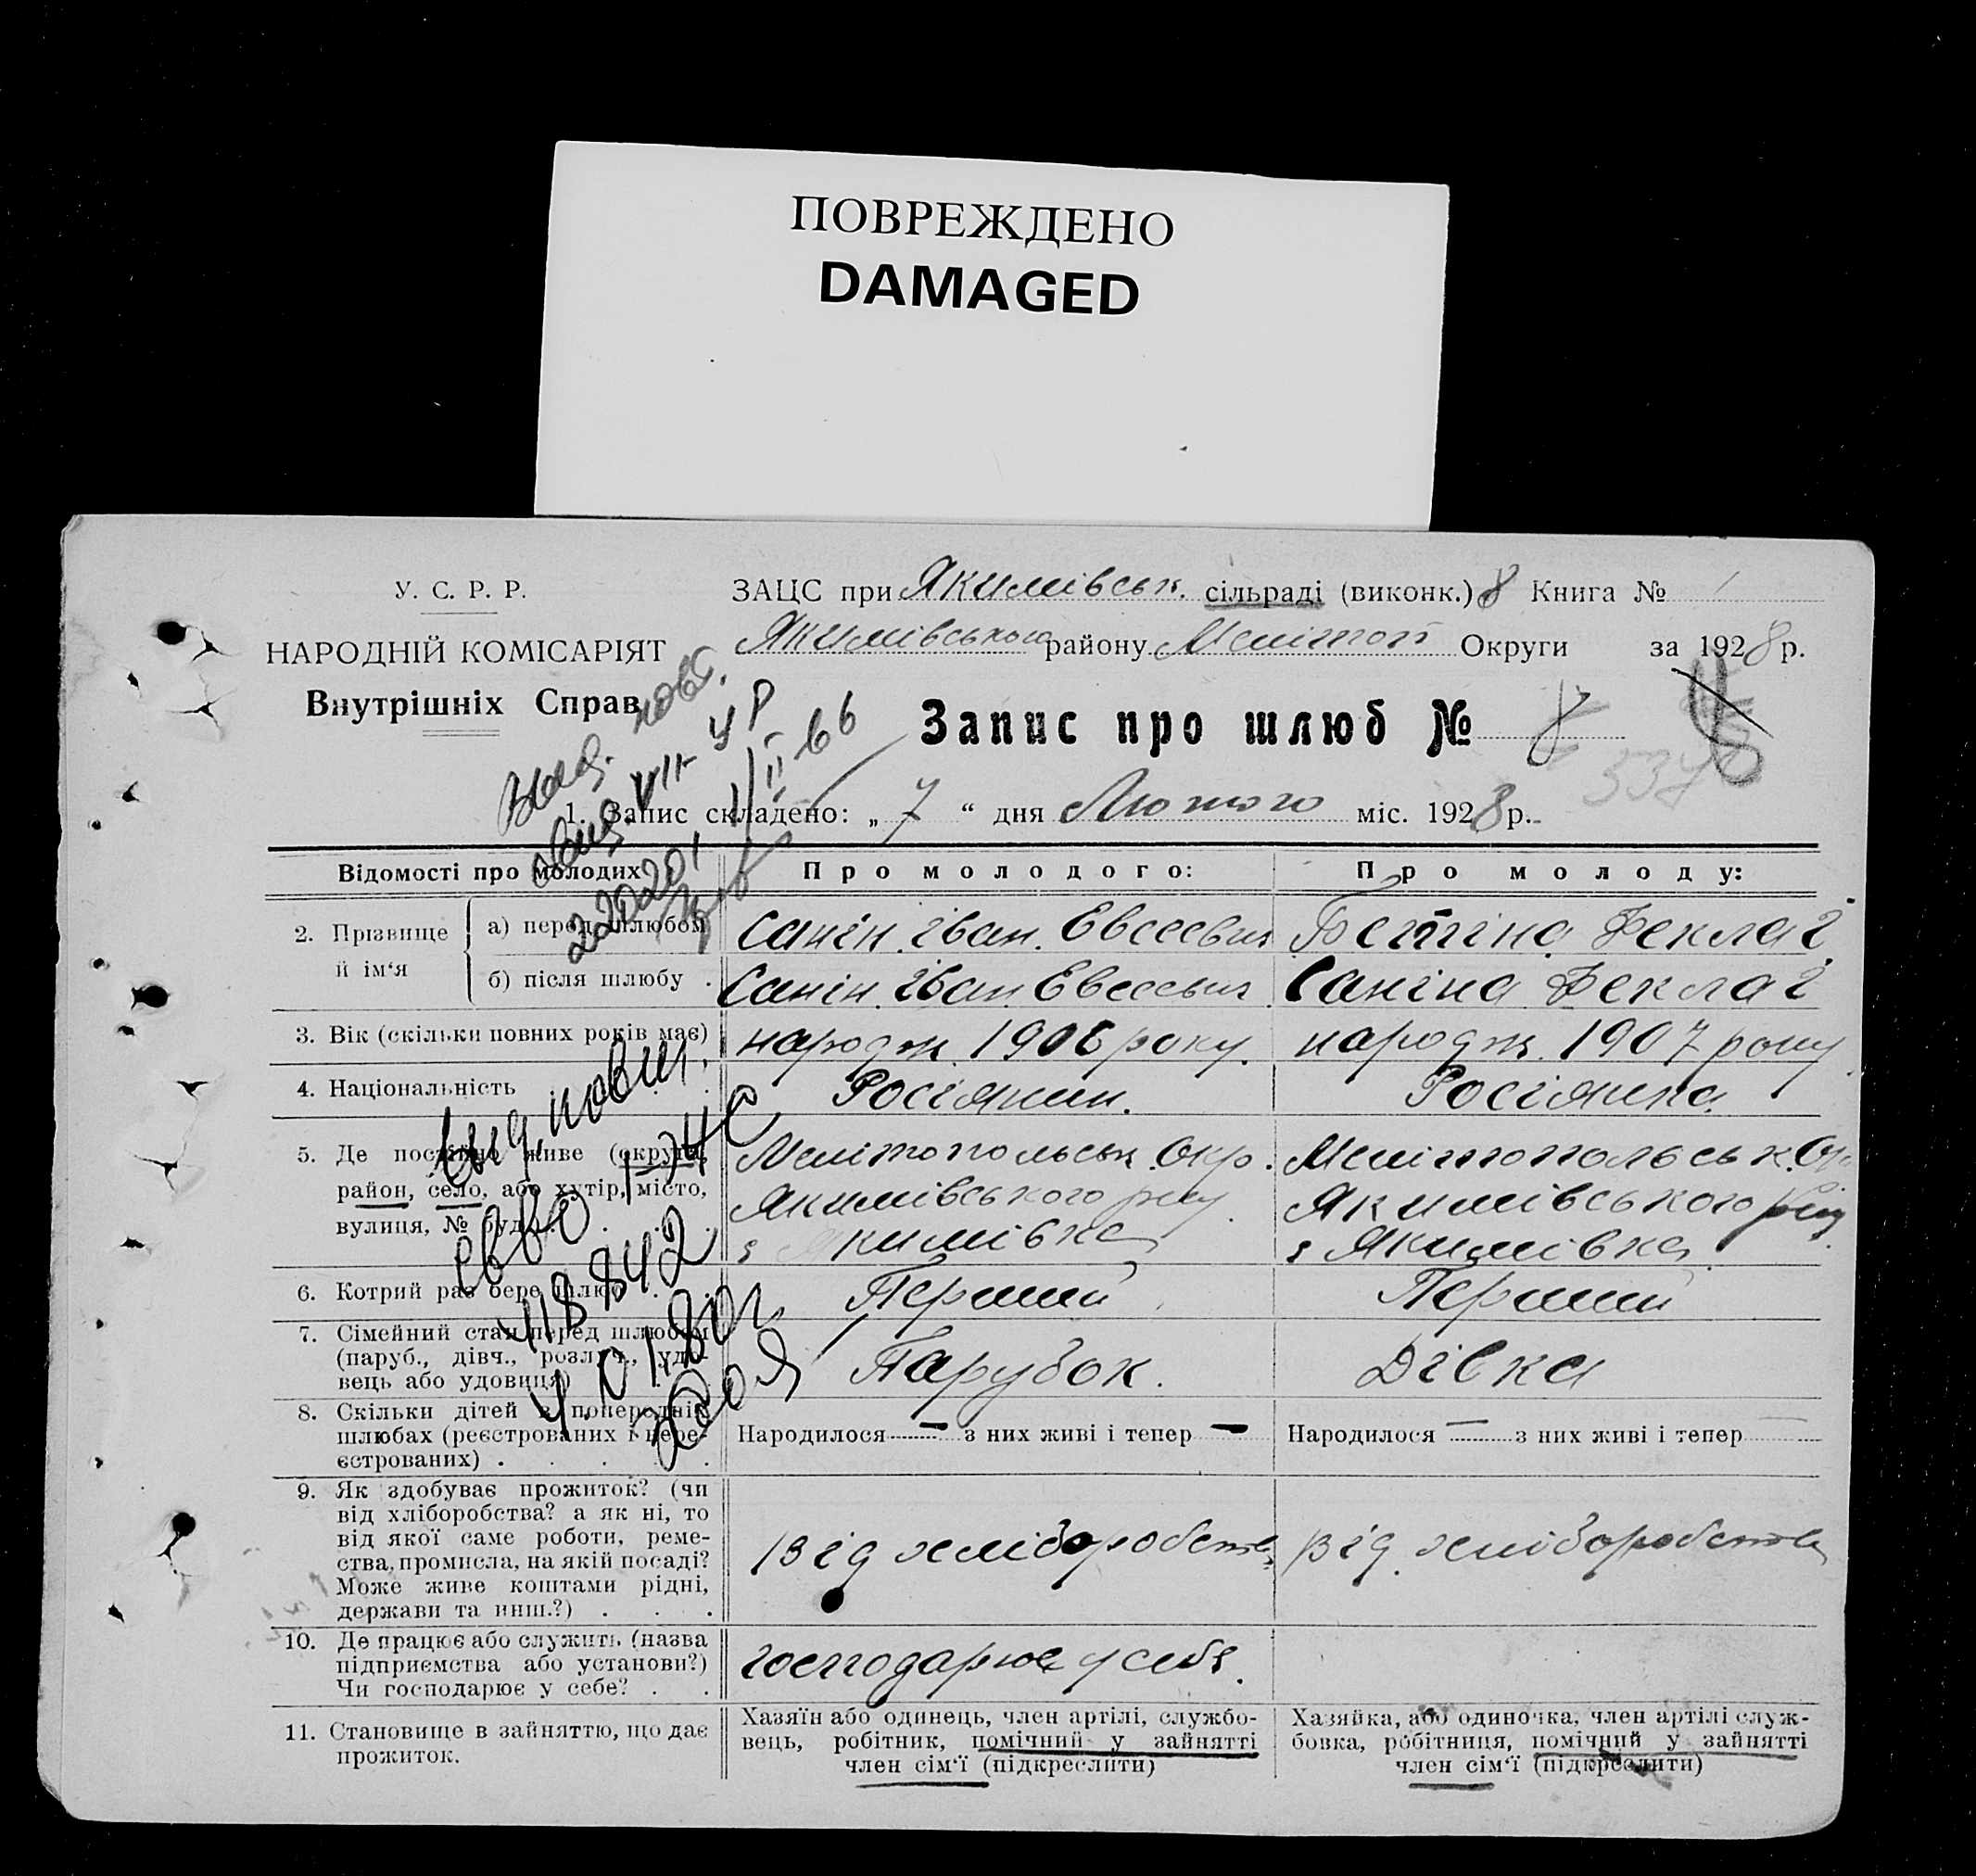 ПОВРЕЖДЕНО
DAMAGED
У. С. Р. Р.
НАРОДНІЙ КОМІСАРІЯТ
Внутрішніх Справ
ЗАЦС при Якимівськ. сільраді (виконк.) 8 Книга № 1
Якимівського району Мелітоп Округи за 1928 р.
Запис про шлюб № 8
1. Запис складено: „ 7 “ дня Лютого міс. 1928 р.
Відомості про молодих
Про молодого:
Про молоду:
2. Прізвище й ім‘я
а) перед шлюбом
Санін Іван Евсеевич
Фекла
б) після шлюбу .
Санін Іван Евсеевич
Саніна Фекла
3. Вік (скільки повних років має)
народж. 1906 року.
народж. 1907 року
4. Національність
Росіянин.
Росіянка
5. Де постійно живе (округа, район, село, або хутір, місто, вулиця, № буд.
Мелітопольськ. Окр.
Якимівського р-ну
с Якимівка
Мелітопольськ. Ок
Якимівського р-ну
с Якимівка
6. Котрий раз бере шлюб . .
Перший
Перший
7. Сімейний стан перед шлюбом
(паруб., дівч., розлуч., удо-
вець або удовиця)
Парубок.
Дівка
8. Скільки дітей з попередніх
шлюбах (реєстрованих і нере-
єстрованих) . . . .
Народилося — з них живі і тепер —
Народилося — з них живі і тепер
9. Як здобуває прожиток? (чи
від хліборобства? а як ні, то
від якої саме роботи, реме-
ства, промисла, на якій посаді?
Може живе коштами рідні,
держави та инш.?) . . .
Від хліборобства
Від хліборобства
10. Де працює або служить (назва
підприємства або установи?)
Чи господарює у себе? . .
господарює у себе.
11. Становище в зайняттю, що дає
прожиток.
Хазяїн або одинець, член артілі, службо-
вець, робітник, помічний у зайнятті
член сім‘ї (підкреслити)
Хазяйка, або одиночка, член артілі служ-
бовка, робітниця, помічний у зайнятті
член сім‘ї (підкреслити)